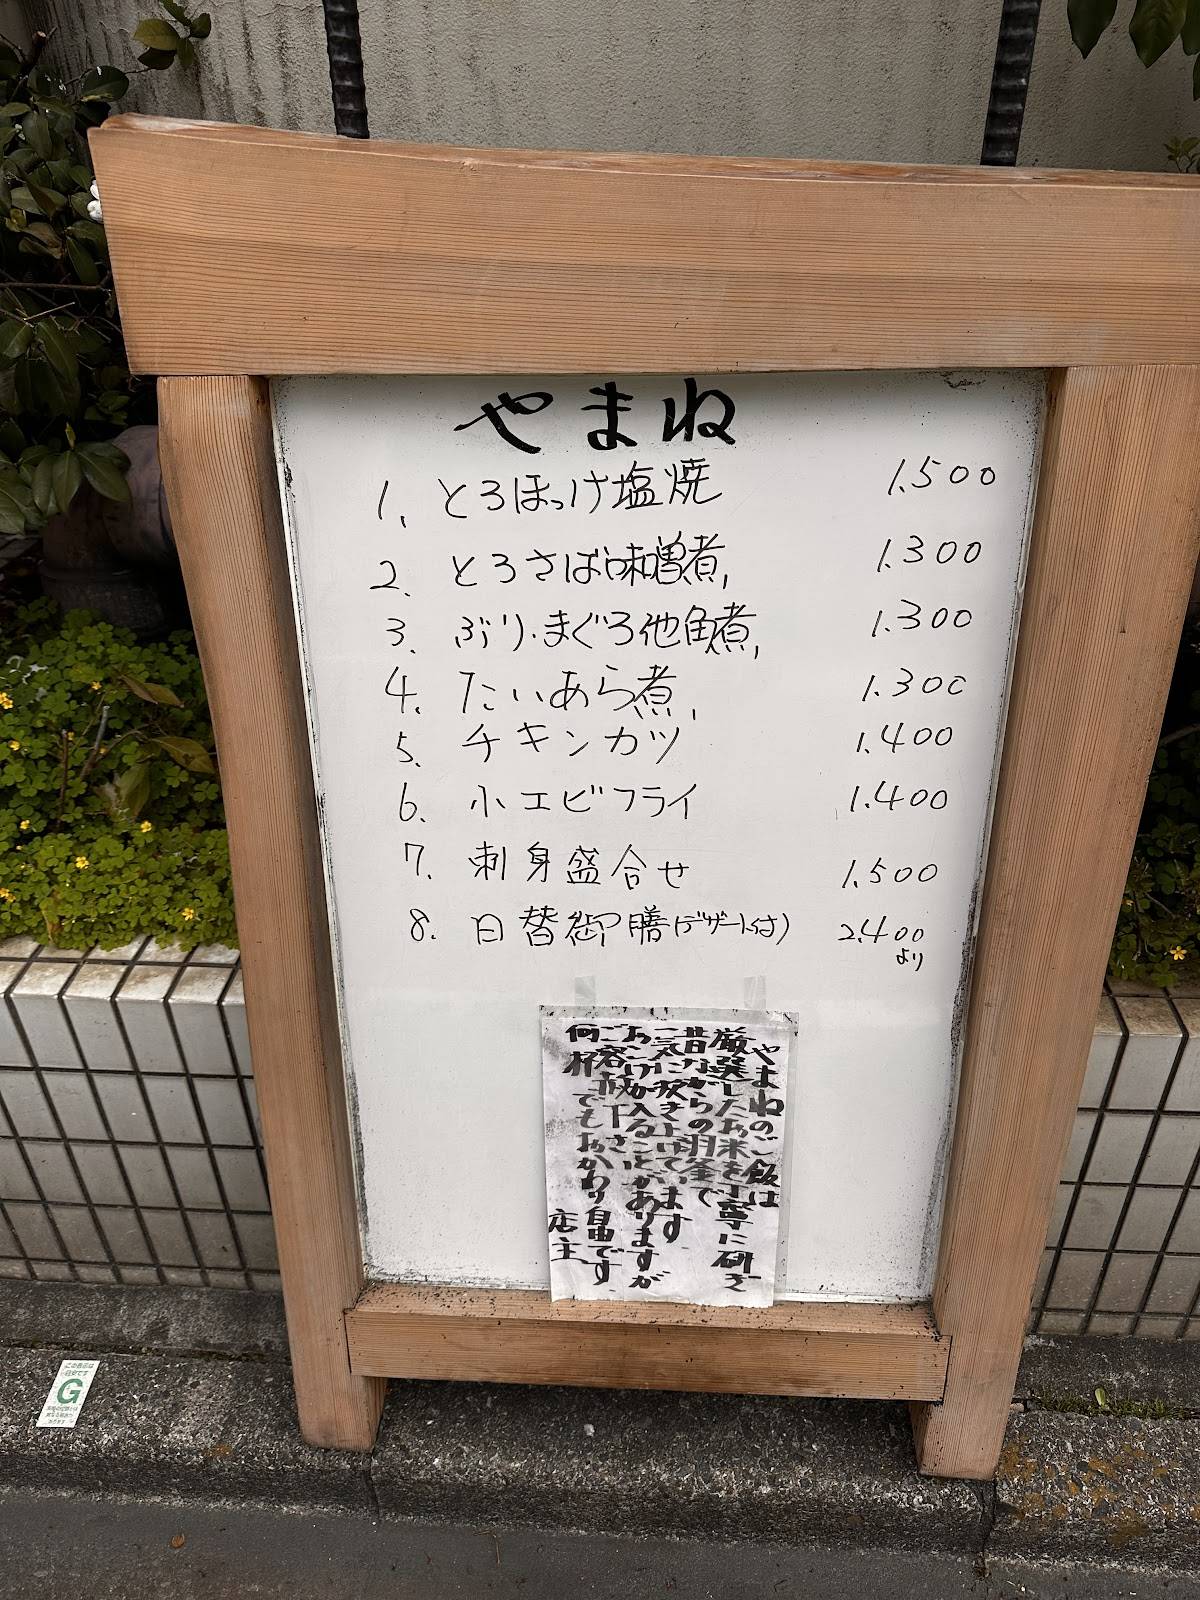 やまね
1. とろほっけ塩焼 1.500
2. とろさば味噌煮 1.300
3. ぶり.まぐろ他角煮 1.300
4. たいあら煮 1.300
5. チキンカツ 1.400
6. 小エビフライ 1.400
7. 刺身盛合せ 1.500
8. 日替御膳(デザート付) 2.400
より
やまねのご飯は
厳選したお米を丁寧に研ぎ
昔ながらの羽釜で
一気に炊き上げてます
おこげが入ることがありますが
ご容赦下さい
何杯でもおかわり自由です
店主
G